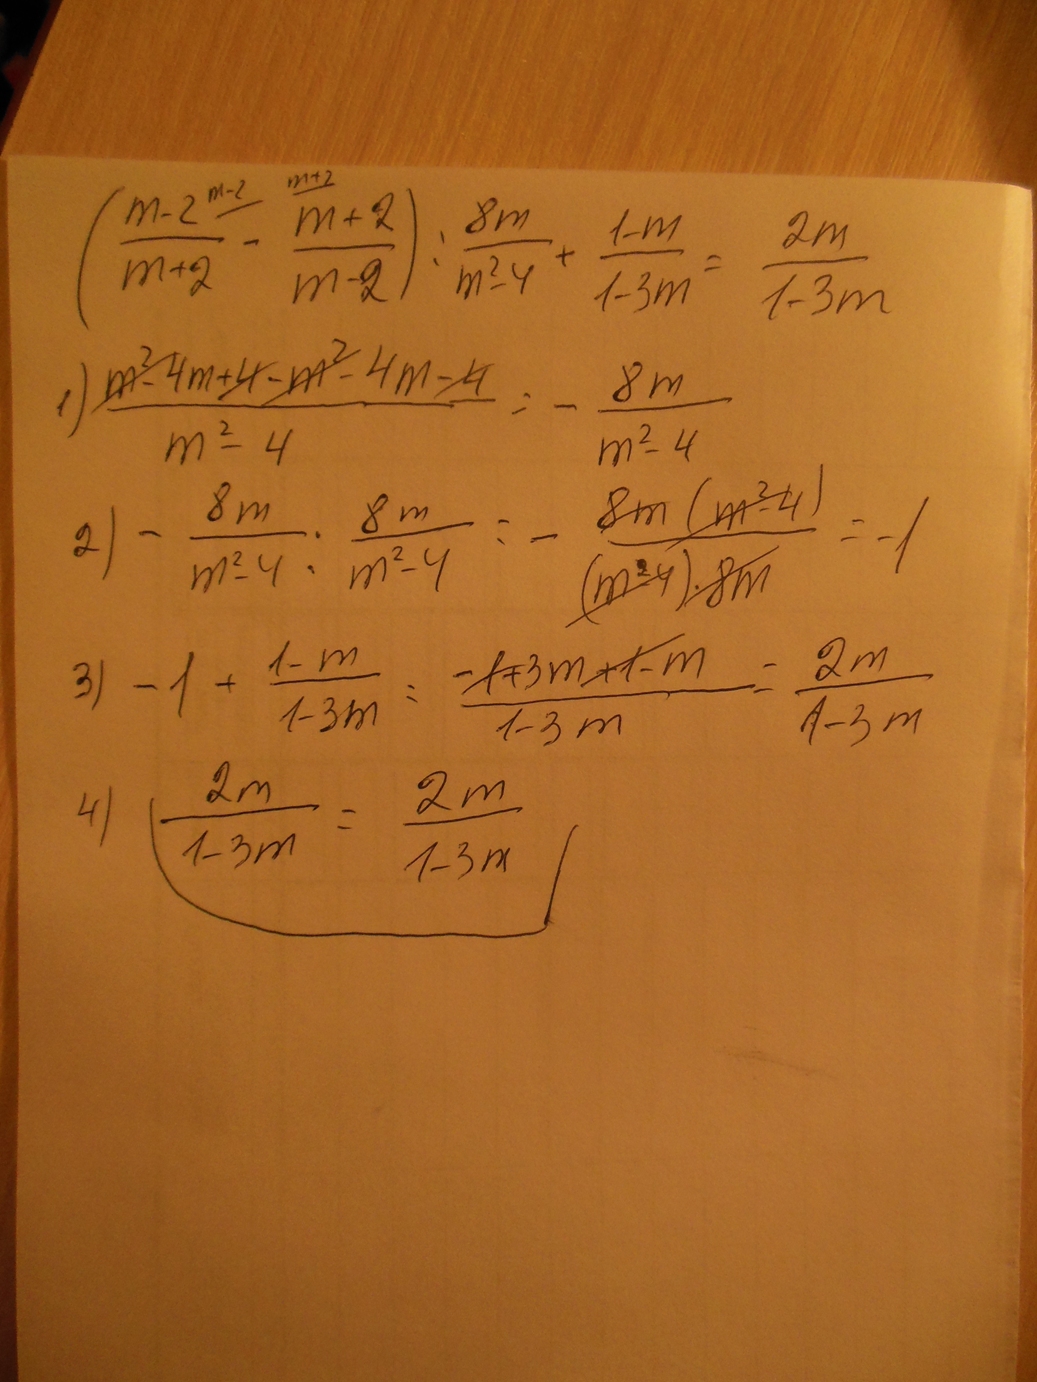 (m-2/m+2 ^m-2 - ^m+2 m+2/m-2) : 8m/m²-4 + 1-m/1-3m = 2m/1-3m
1) m²-4m+4-m²-4m-4/m²-4 = - 8m/m²-4
2) - 8m/m²-4 : 8m/m²-4 = - 8m(m²-4)/(m²-4)·8m = -1
3) -1 + 1-m/1-3m = -1+3m+1-m/1-3m = 2m/1-3m
4) 2m/1-3m = 2m/1-3m